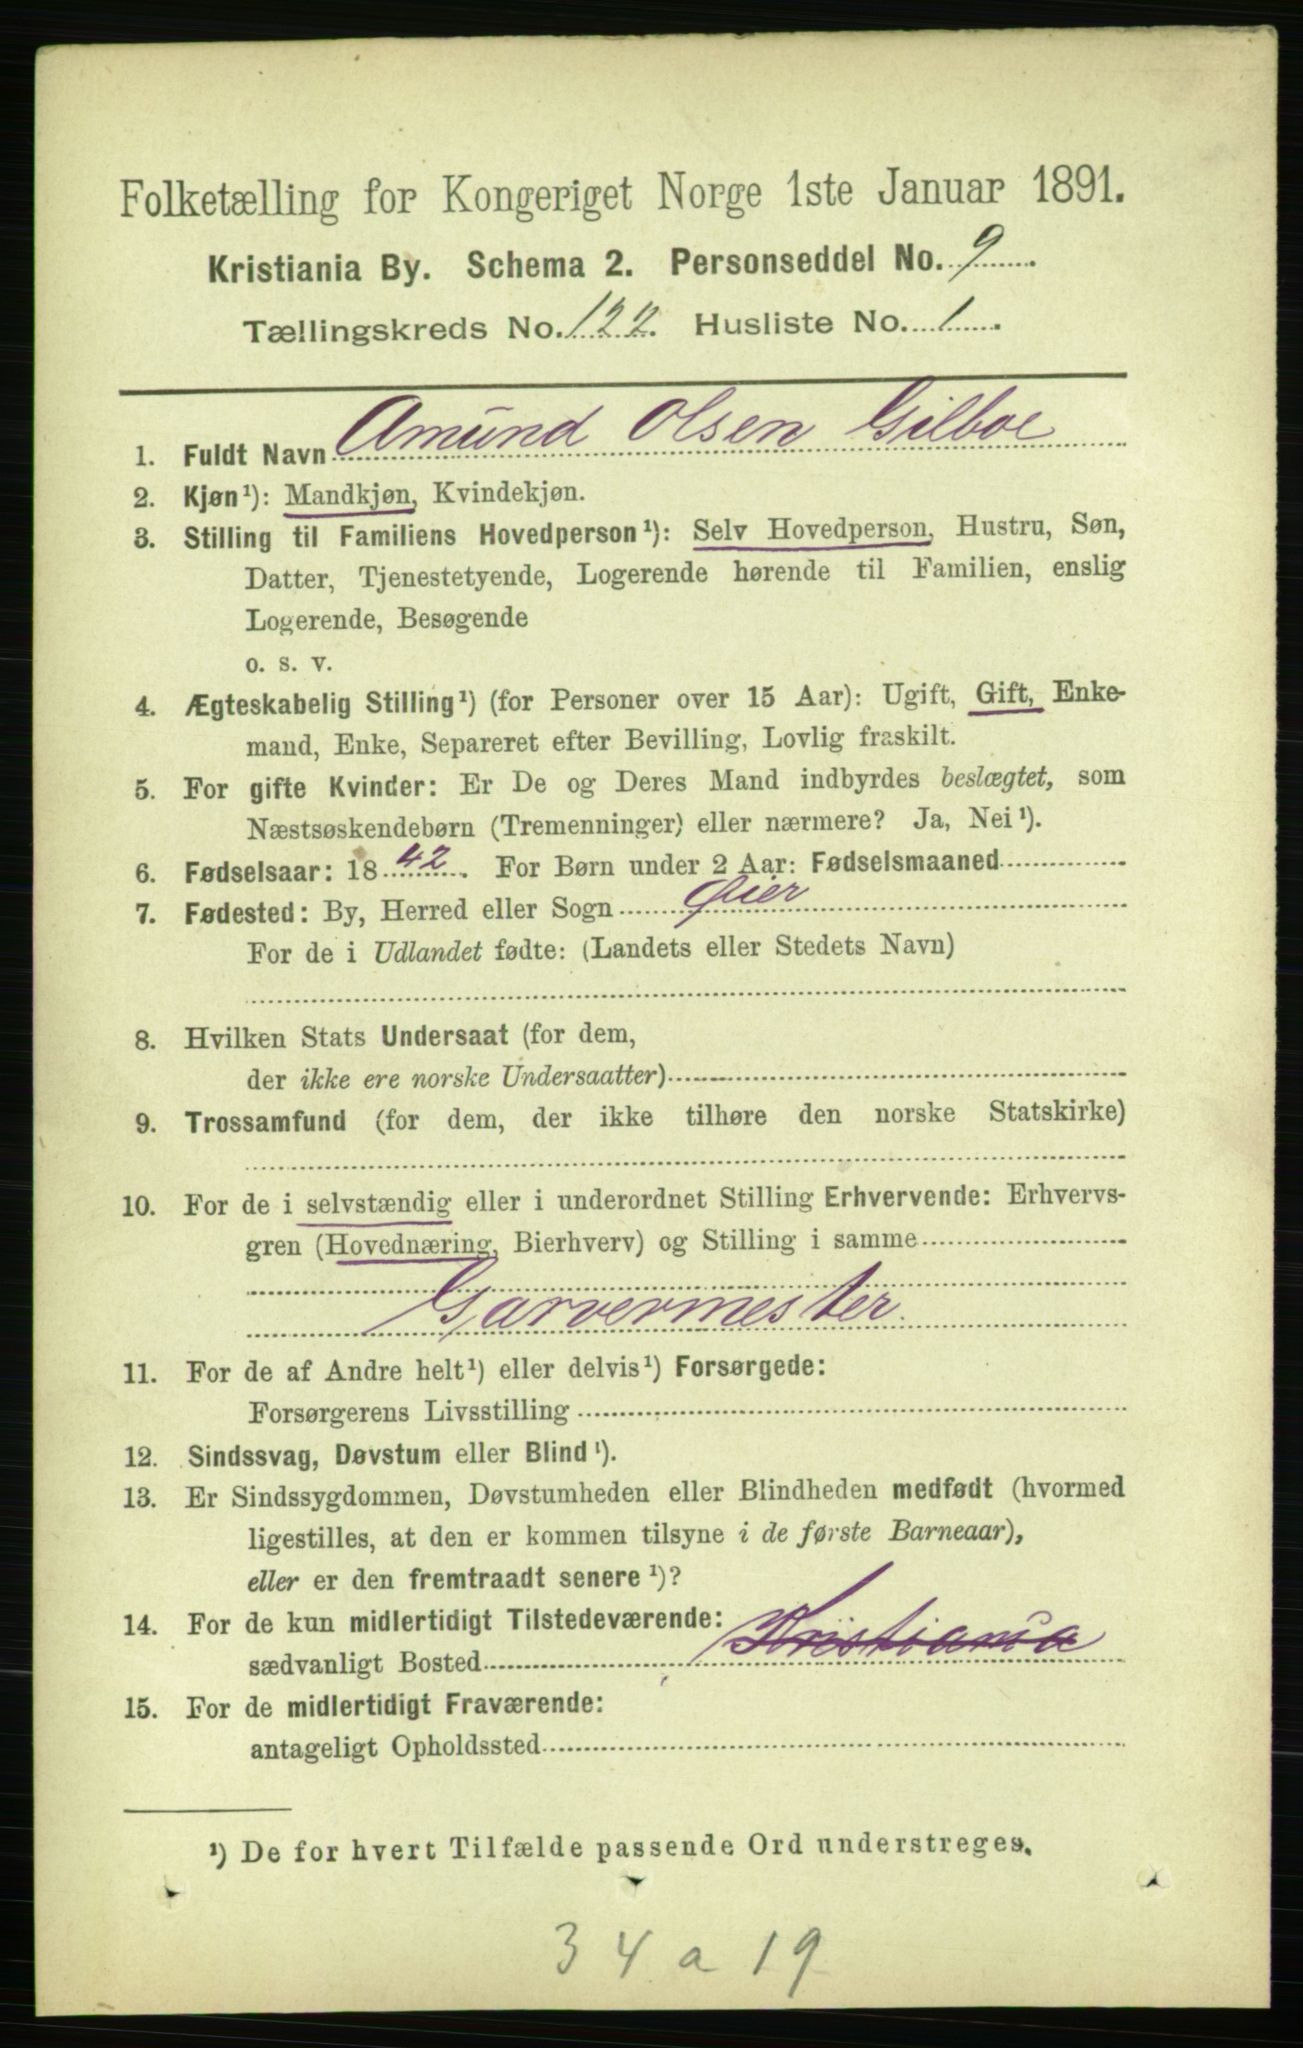 Folketælling for Kongeriget Norge 1ste Januar 1891.
Kristiania By. Schema 2. Personseddel No. 9.
Tællingskreds No. 122. Husliste No. 1.
1. Fuldt Navn Amund Olsen Gilboe
2. Kjøn¹): Mandkjøn, Kvindekjøn.
3. Stilling til Familiens Hovedperson¹): Selv Hovedperson, Hustru, Søn,
Datter, Tjenestetyende, Logerende hørende til Familien, enslig
Logerende, Besøgende
o. s. v.
4. Ægteskabelig Stilling¹) (for Personer over 15 Aar): Ugift, Gift, Enke-
mand, Enke, Separeret efter Bevilling, Lovlig fraskilt.
5. For gifte Kvinder: Er De og Deres Mand indbyrdes beslægtet, som
Næstsøskendebørn (Tremenninger) eller nærmere? Ja, Nei¹).
6. Fødselsaar: 1842. For Børn under 2 Aar: Fødselsmaaned
7. Fødested: By, Herred eller Sogn Øier
For de i Udlandet fødte: (Landets eller Stedets Navn)
8. Hvilken Stats Undersaat (for dem,
der ikke ere norske Undersaatter)
9. Trossamfund (for dem, der ikke tilhøre den norske Statskirke)
10. For de i selvstændig eller i underordnet Stilling Erhvervende: Erhvervs-
gren (Hovednæring, Bierhverv) og Stilling i samme
Garvermester.
11. For de af Andre helt¹) eller delvis¹) Forsørgede:
Forsørgerens Livsstilling
12. Sindssvag, Døvstum eller Blind¹).
13. Er Sindssygdommen, Døvstumheden eller Blindheden medfødt (hvormed
ligestilles, at den er kommen tilsyne i de første Barneaar),
eller er den fremtraadt senere¹)?
14. For de kun midlertidigt Tilstedeværende:
sædvanligt Bosted Kristiania
15. For de midlertidigt Fraværende:
antageligt Opholdssted
¹) De for hvert Tilfælde passende Ord understreges.
34 a 19